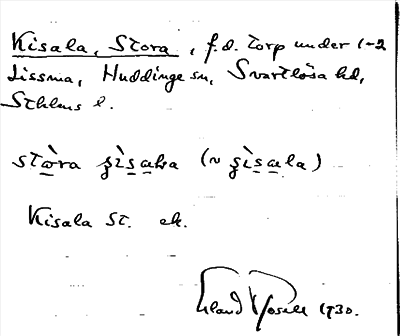 Kisala, Stora, f.d. torp under 1-2
Lissma, Huddinge sn, Svartlösa hd,
Sthlms l.
stòra ʂìsaka (~ ʂìsala)
Kisala St. ek.
Erland Rosell 1930.